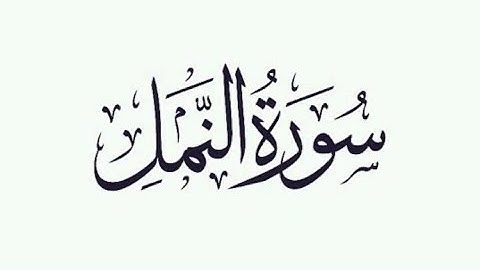 سُورَةُ النَّمۡلِ